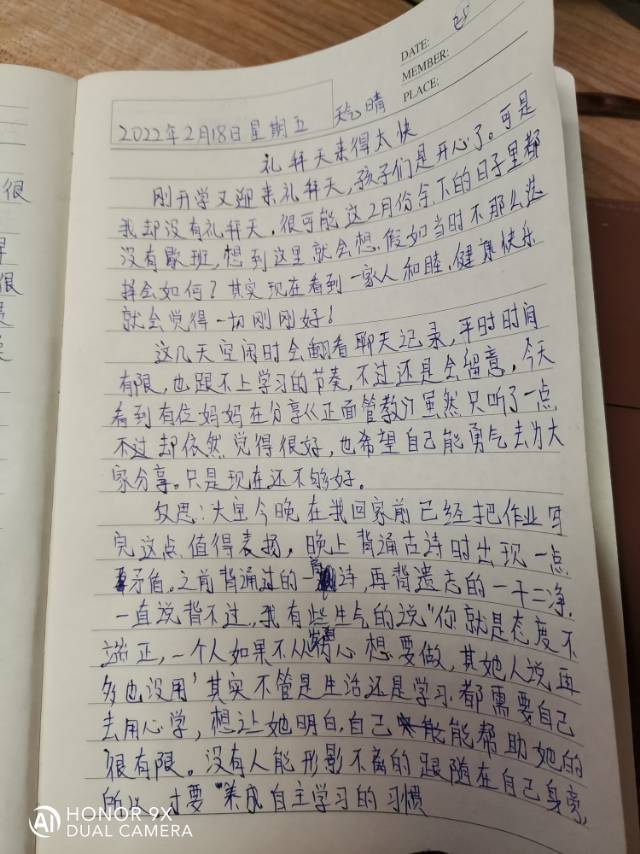 DATE:
MEMBER:
PLACE:
2022年2月18日星期五 晴
礼拜天来得太快
刚开学又迎来礼拜天,孩子们是开心了。可是
我却没有礼拜天,很可能这2月份余下的日子里都
没有歇班,想到这里就会想,假如当时不那么选
择会如何?其实现在看到一家人和睦,健康快乐
就会觉得一切刚刚好!
这几天空闲时会翻看聊天记录,平时时间
有限,也跟不上学习的节奏,不过还是会留意,今天
看到有位妈妈在分享《正面管教》虽然只听了一点
不过却依然觉得很好,也希望自己能勇气去为大
家分享。只是现在还不够好。
反思:大宝今晚在我回家前已经把作业写
完这点值得表扬,晚上背诵古诗时出现一点
矛盾。之前背诵过的一首诗,再背遗忘的一干二净,
一直说背不过,我有些生气的说"你就是态度不
端正,一个人如果不从内心想要做,其她人说再
多也没用'其实不管是生活还是学习都需要自己
去用心学,想让她明白,自己能能帮助她的
很有限。没有人能形影不离的跟随在自己身旁,
所以才要"养成自主学习的习惯
很
很
AI HONOR 9X
DUAL CAMERA